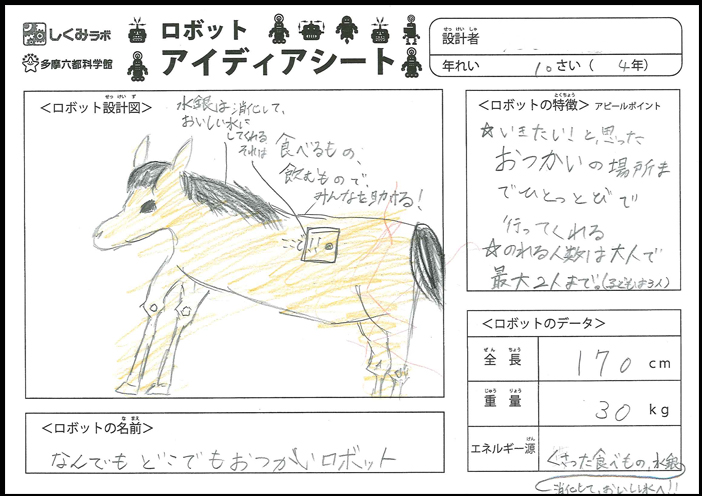 しくみラボ
多摩六都科学館
ロボット
アイディアシート
設計者
せっけいしゃ
年れい 10さい ( 4年)
<ロボット設計図>
せっけいず
水銀は消化して、
おいしい水に
してくれる
それは
食べるもの、
飲むもので、
みんなを助ける!
ここで!!
<ロボットの特徴> アピールポイント
とくちょう
☆いきたい!と、思った
おつかいの場所ま
でひとっとびで
行ってくれる
☆のれる人数は大人で
最大2人まで。(子どもは3人)
<ロボットのデータ>
ぜん ちょう
全長 170 cm
じゅう りょう
重量 30 kg
げん
エネルギー源 くさった食べもの、水銀
消化して、おいしい水へ!!
<ロボットの名前>
なまえ
なんでもどこでもおつかいロボット